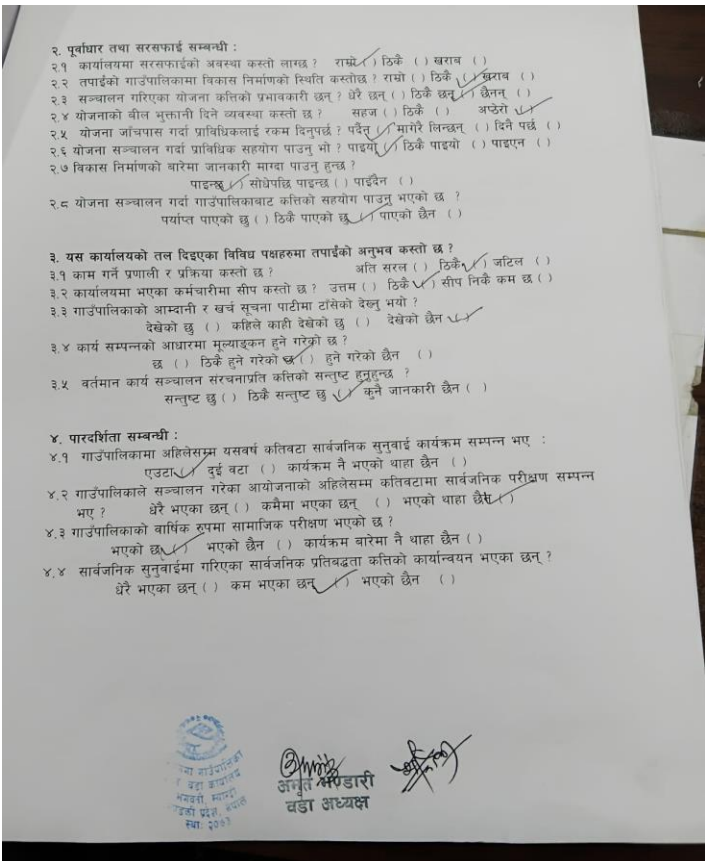 २. पूर्वाधार तथा सरसफाई सम्बन्धी :
२.१ कार्यालयमा सरसफाईको अवस्था कस्तो लाग्छ ? राम्रो (✓) ठिकै ( ) खराब ( )
२.२ तपाईको गाउँपालिकामा विकास निर्माणको स्थिति कस्तोछ ? राम्रो ( ) ठिकै (✓) खराब ( )
२.३ सञ्चालन गरिएका योजना कत्तिको प्रभावकारी छन् ? धेरै छन् ( ) ठिकै छन् (✓) छैनन् ( )
२.४ योजनाको बील भुक्तानी दिने व्यवस्था कस्तो छ ? सहज ( ) ठिकै ( ) अप्ठेरो (✓)
२.५ योजना जाँचपास गर्दा प्राविधिकलाई रकम दिनुपर्छ ? पर्दैन (✓) मागेरै लिन्छन् ( ) दिनै पर्छ ( )
२.६ योजना सञ्चालन गर्दा प्राविधिक सहयोग पाउनु भो ? पाइयो (✓) ठिकै पाइयो ( ) पाइएन ( )
२.७ विकास निर्माणको बारेमा जानकारी माग्दा पाउनु हुन्छ ?
पाइन्छ (✓) सोधेपछि पाइन्छ ( ) पाइँदैन ( )
२.८ योजना सञ्चालन गर्दा गाउँपालिकाबाट कत्तिको सहयोग पाउनु भएको छ ?
पर्याप्त पाएको छु ( ) ठिकै पाएको छु (✓) पाएको छैन ( )
३. यस कार्यालयको तल दिइएका विविध पक्षहरुमा तपाईंको अनुभव कस्तो छ ?
३.१ काम गर्ने प्रणाली र प्रक्रिया कस्तो छ ? अति सरल ( ) ठिकै (✓) जटिल ( )
३.२ कार्यालयमा भएका कर्मचारीमा सीप कस्तो छ ? उत्तम ( ) ठिकै (✓) सीप निकै कम छ ( )
३.३ गाउँपालिकाको आम्दानी र खर्च सूचना पाटीमा टाँसेको देख्नु भयो ?
देखेको छु ( ) कहिले काही देखेको छु ( ) देखेको छैन (✓)
३.४ कार्य सम्पन्नको आधारमा मूल्याङ्कन हुने गरेको छ ?
छ ( ) ठिकै हुने गरेको छ (✓) हुने गरेको छैन ( )
३.५ वर्तमान कार्य सञ्चालन संरचनाप्रति कत्तिको सन्तुष्ट हुनुहुन्छ ?
सन्तुष्ट छु ( ) ठिकै सन्तुष्ट छु (✓) कुनै जानकारी छैन ( )
४. पारदर्शिता सम्बन्धी :
४.१ गाउँपालिकामा अहिलेसम्म यसवर्ष कतिवटा सार्वजनिक सुनुवाई कार्यक्रम सम्पन्न भए :
एउटा (✓) दुई वटा ( ) कार्यक्रम नै भएको थाहा छैन ( )
४.२ गाउँपालिकाले सञ्चालन गरेका आयोजनाको अहिलेसम्म कतिवटामा सार्वजनिक परीक्षण सम्पन्न
भए ? धेरै भएका छन् ( ) कमैमा भएका छन् ( ) भएको थाहा छैन (✓)
४.३ गाउँपालिकाको वार्षिक रुपमा सामाजिक परीक्षण भएको छ ?
भएको छ (✓) भएको छैन ( ) कार्यक्रम बारेमा नै थाहा छैन ( )
४.४ सार्वजनिक सुनुवाईमा गरिएका सार्वजनिक प्रतिबद्धता कत्तिको कार्यान्वयन भएका छन् ?
धेरै भएका छन् ( ) कम भएका छन् (✓) भएको छैन ( )
अमृत भण्डारी
वडा अध्यक्ष